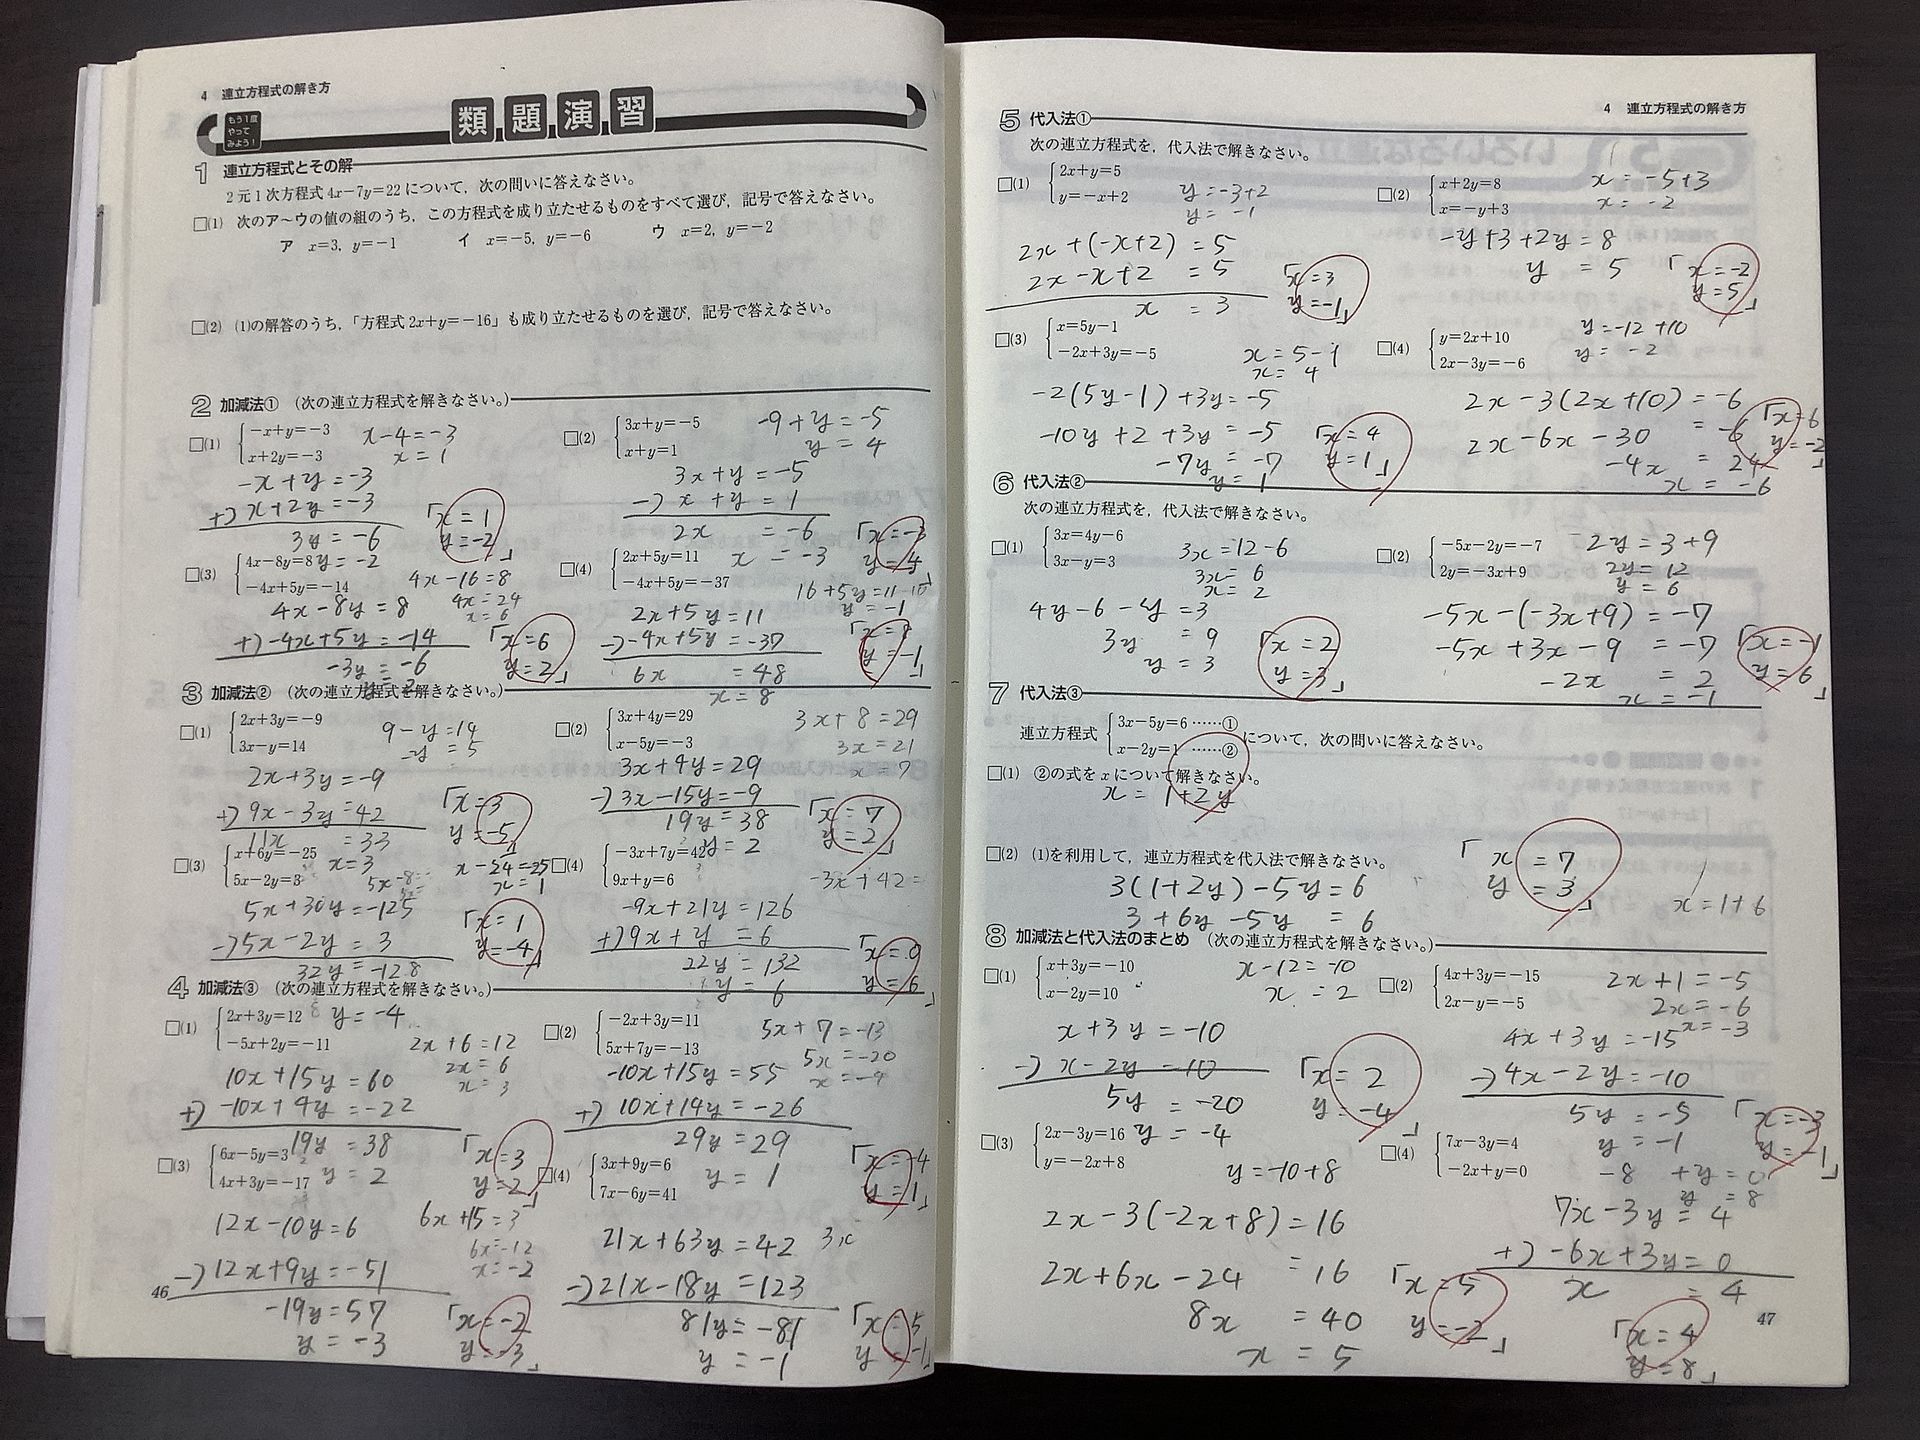 4 連立方程式の解き方
もう1度
やって
みよう!
類題演習
1 連立方程式とその解
2元1次方程式4x−7y=22について，次の問いに答えなさい。
□(1) 次のア〜ウの値の組のうち，この方程式を成り立たせるものをすべて選び，記号で答えなさい。
ア x=3, y=−1 イ x=−5, y=−6 ウ x=2, y=−2
□(2) (1)の解答のうち，「方程式2x+y=−16」も成り立たせるものを選び，記号で答えなさい。
2 加減法① (次の連立方程式を解きなさい。)
□(1)
−x+y=−3
x+2y=−3
x−4=−3
x=1
−x+y=−3
+) x+2y=−3
3y=−6
y=−2
「x=1
y=−2」
□(2)
3x+y=−5
x+y=1
−9+y=−5
y=4
3x+y=−5
−) x+y=1
2x=−6
x=−3
「x=−3
y=4」
□(3)
4x−8y=8
−4x+5y=−14
4x−16=8
4x=24
x=6
4x−8y=8
+) −4x+5y=−14
−3y=−6
「x=6
y=2」
□(4)
2x+5y=11
−4x+5y=−37
16+5y=11
y=−1
2x+5y=11
−) −4x+5y=−37
6x=48
x=8
「x=8
y=−1」
3 加減法② (次の連立方程式を解きなさい。)
□(1)
2x+3y=−9
3x−y=14
9−y=14
−y=5
2x+3y=−9
+) 9x−3y=42
11x=33
x=3
「x=3
y=−5」
□(2)
3x+4y=29
x−5y=−3
3x+8=29
3x=21
x=7
3x+4y=29
−) 3x−15y=−9
19y=38
y=2
「x=7
y=2」
□(3)
x+6y=−25
5x−2y=3
x−24=−25
x=1
5x+30y=−125
−) 5x−2y=3
32y=−128
y=−4
「x=1
y=−4」
□(4)
−3x+7y=42
9x+y=6
−3x+42=
−9x+21y=126
+) 9x+y=6
22y=132
y=6
「x=0
y=6」
4 加減法③ (次の連立方程式を解きなさい。)
□(1)
2x+3y=12
−5x+2y=−11
2x+6=12
2x=6
x=3
10x+15y=60
+) −10x+4y=−22
19y=38
y=2
「x=3
y=2」
□(2)
−2x+3y=11
5x+7y=−13
5x+7=−13
5x=−20
x=−4
−10x+15y=55
+) 10x+14y=−26
29y=29
y=1
「x=−4
y=1」
□(3)
6x−5y=3
4x+3y=−17
6x+15=3
6x=−12
x=−2
12x−10y=6
−) 12x+9y=−51
−19y=57
y=−3
「x=−2
y=−3」
□(4)
3x+9y=6
7x−6y=41
21x+63y=42
3x
−) 21x−18y=123
81y=−81
y=−1
「x=5
y=−1」
46
4 連立方程式の解き方
5 代入法①
次の連立方程式を，代入法で解きなさい。
□(1)
2x+y=5
y=−x+2
y=−3+2
y=−1
2x+(−x+2)=5
2x−x+2=5
x=3
「x=3
y=−1」
□(2)
x+2y=8
x=−y+3
x=−5+3
x=−2
−y+3+2y=8
y=5
「x=−2
y=5」
□(3)
x=5y−1
−2x+3y=−5
x=5−1
x=4
−2(5y−1)+3y=−5
−10y+2+3y=−5
−7y=−7
y=1
「x=4
y=1」
□(4)
y=2x+10
2x−3y=−6
y=−12+10
y=−2
2x−3(2x+10)=−6
2x−6x−30=−6
−4x=24
x=−6
「x=6
y=−2」
6 代入法②
次の連立方程式を，代入法で解きなさい。
□(1)
3x=4y−6
3x−y=3
3x=12−6
3x=6
x=2
4y−6−y=3
3y=9
y=3
「x=2
y=3」
□(2)
−5x−2y=−7
2y=−3x+9
2y=3+9
2y=12
y=6
−5x−(−3x+9)=−7
−5x+3x−9=−7
−2x=2
x=−1
「x=−1
y=6」
7 代入法③
連立方程式
3x−5y=6 ……①
x−2y=1 ……②
について，次の問いに答えなさい。
□(1) ②の式をxについて解きなさい。
x=1+2y
□(2) (1)を利用して，連立方程式を代入法で解きなさい。
3(1+2y)−5y=6
3+6y−5y=6
「x=7
y=3」
x=1+6
8 加減法と代入法のまとめ (次の連立方程式を解きなさい。)
□(1)
x+3y=−10
x−2y=10
x−12=−10
x=2
x+3y=−10
−) x−2y=10
5y=−20
y=−4
「x=2
y=−4」
□(2)
4x+3y=−15
2x−y=−5
2x+1=−5
2x=−6
x=−3
4x+3y=−15
−) 4x−2y=−10
5y=−5
y=−1
「x=−3
y=−1」
□(3)
2x−3y=16
y=−2x+8
y=−10+8
2x−3(−2x+8)=16
2x+6x−24=16
8x=40
x=5
「x=5
y=−2」
□(4)
7x−3y=4
−2x+y=0
−8+y=0
y=8
7x−3y=4
+) −6x+3y=0
x=4
「x=4
y=8」
47